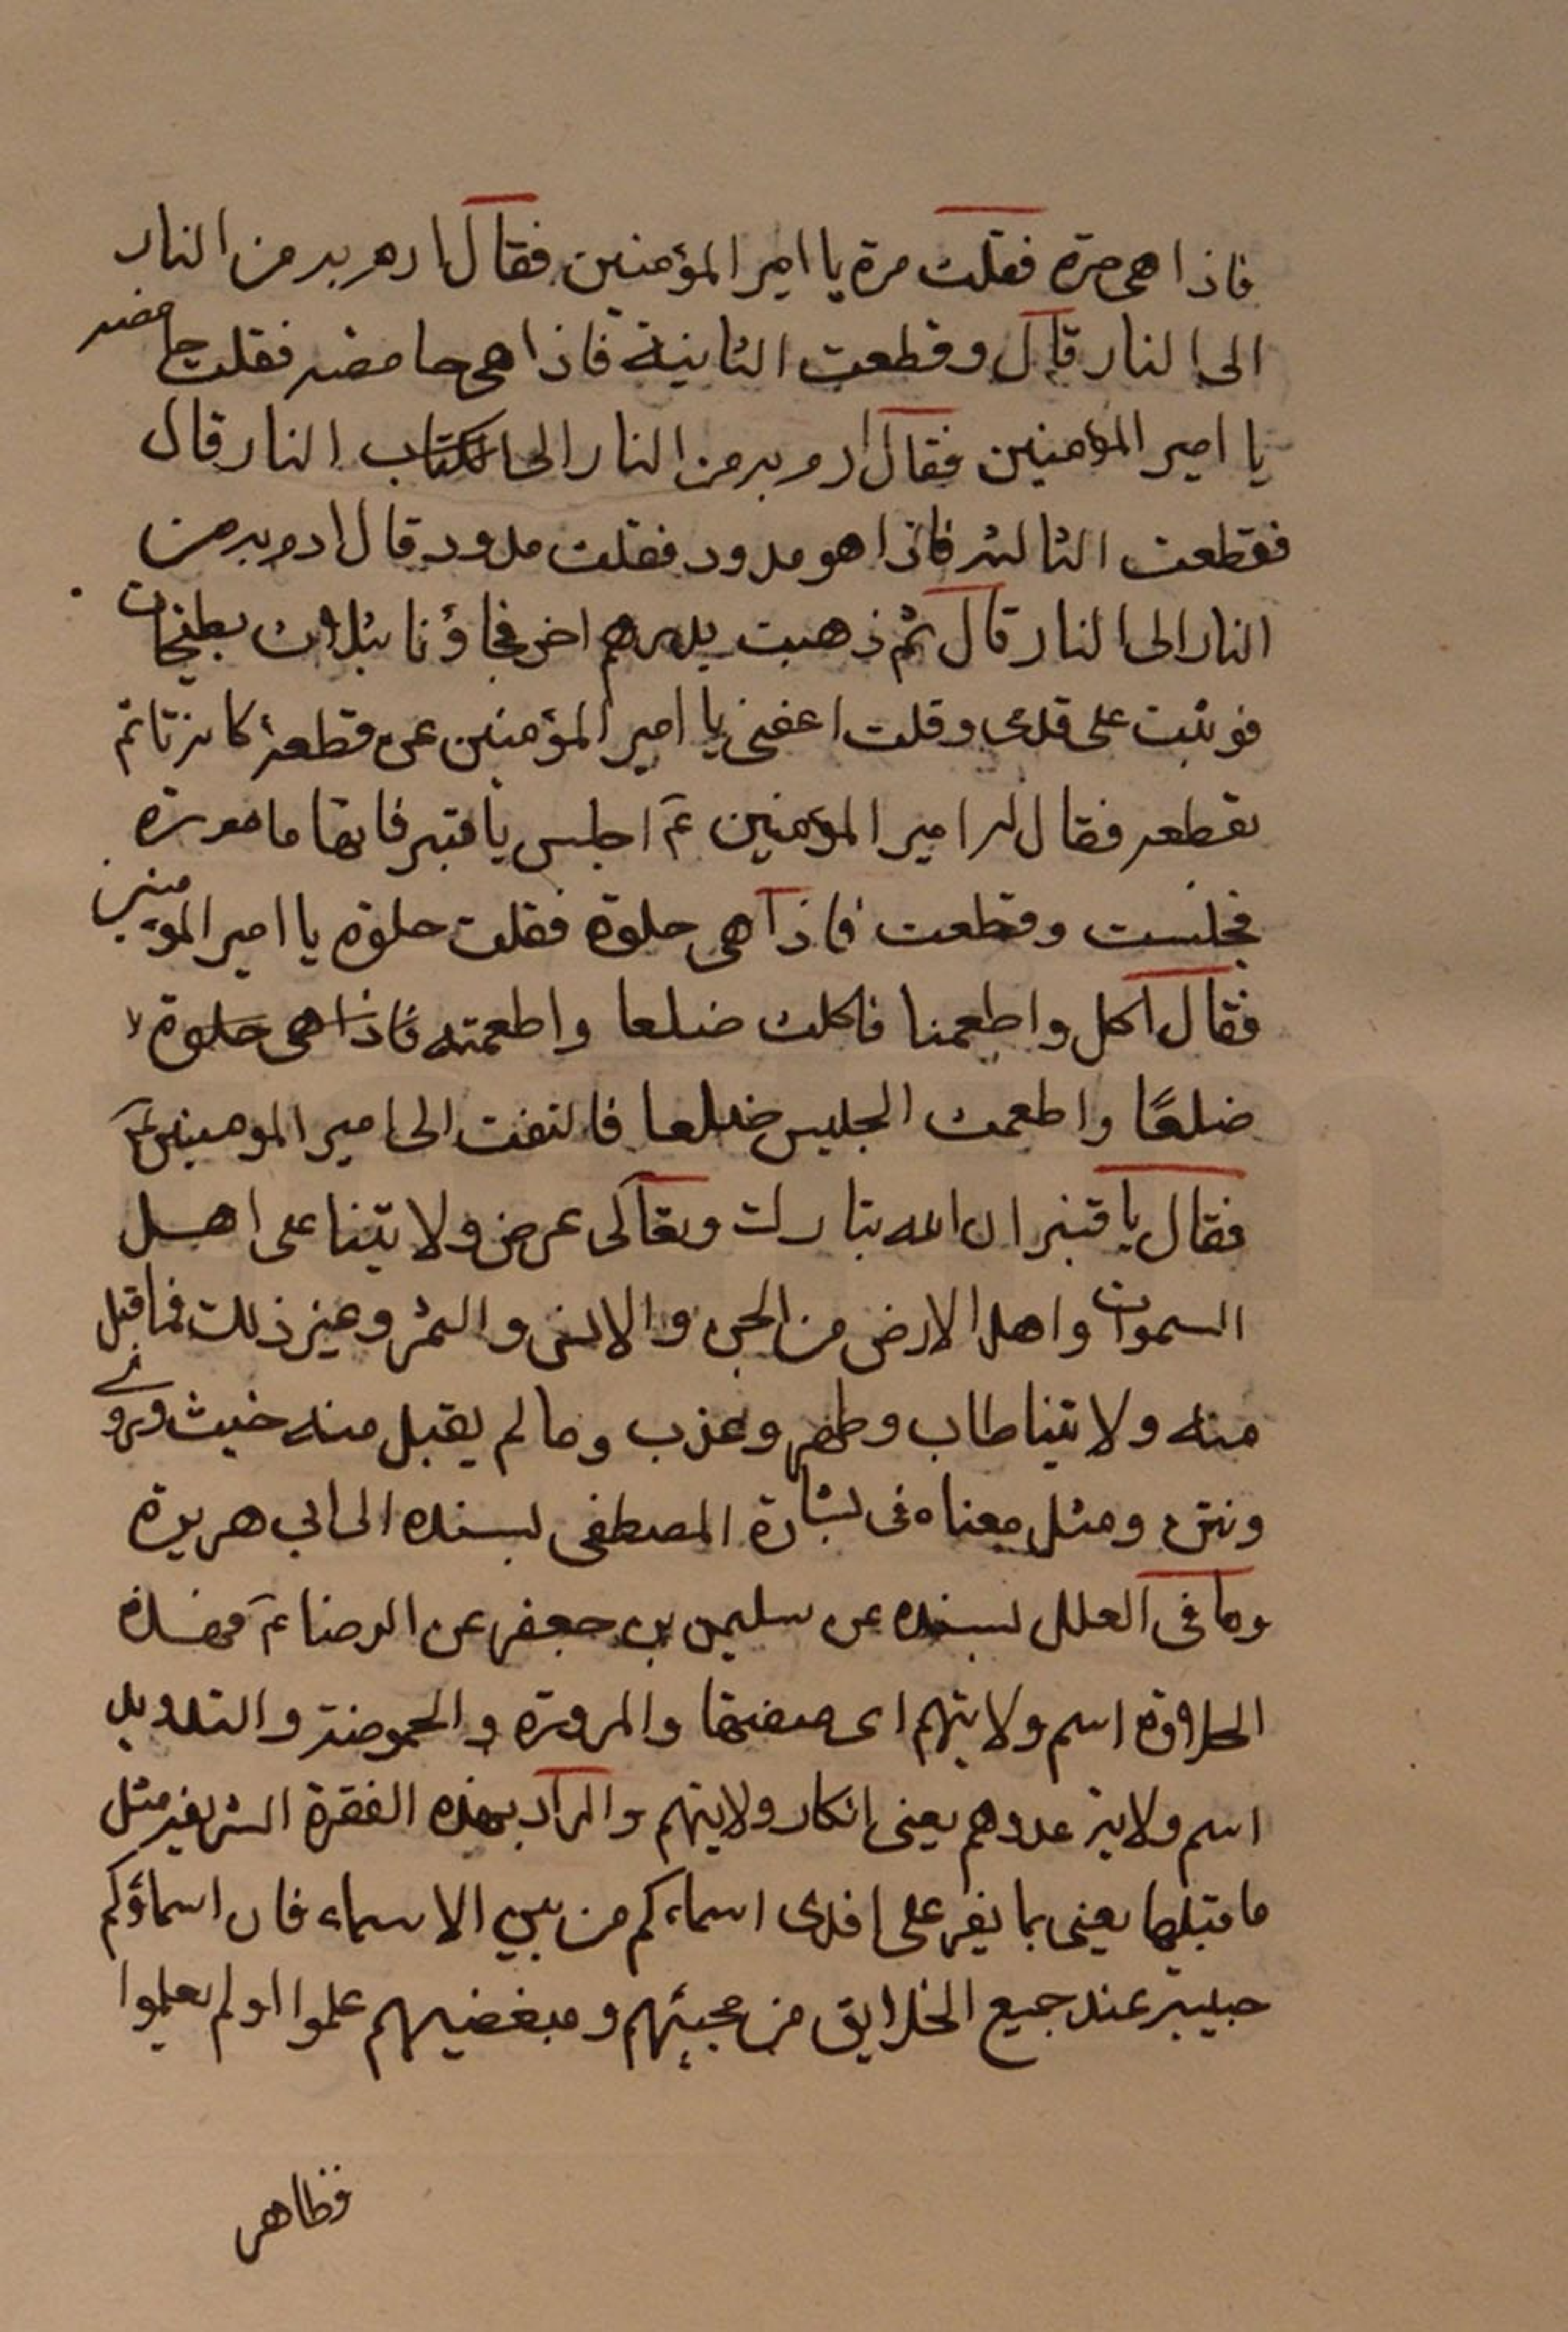 فاذا هى مرة فقلت مرة يا امير المؤمنين فقال ارم به من النار
الى النار قال وقطعت الثانية فاذا هى حامضه فقلت حامضه
يا امير المؤمنين فقال ارم به من النار الى النار قال
فقطعت الثالثه فاذا هو مدود فقلت مدود قال ارم به من
النار الى النار قال ثم ذهبت بدرهم اخر فجاؤنا بثلاث بطيخات
فوثبت على قدمى وقلت اعفنى يا امير المؤمنين عن قطعه كانه تاثم
بقطعه فقال له امير المؤمنين ع اجلس يا قنبر فانها مامورة
فجلست وقطعت فاذا هى حلوة فقلت حلوة يا امير المؤمنين
فقال كل واطعمنا فاكلت ضلعا واطعمته
ضلعًا واطعمت الجليس ضلعا فالتفت الى امير المومنين ع
فقال يا قنبر ان الله تبارك وتعالى عرض ولايتنا على اهل
السموات واهل الارض من الجن والانس والثمر وغير ذلك فما قبل
منه ولايتنا طاب وطهر وعذب وما لم يقبل منه خبث وردى
ونتن ومثل معناه فى بشارة المصطفى بسنده الى ابي هريرة
وما فى العلل بسنده عن سليمن بن جعفر عن الرضا ع فهذه
الحلاوة اسم ولايتهم اى صفتها والمرورة والحموضة والتدويد
اسم ولاية عدوهم يعنى انكار ولايتهم والمراد بهذه الفقرة الشريفه مثل
ما قبلها يعنى بما يفر على افدى اسماءكم من بين الاسماء فان اسماؤكم
حبيبة عند جميع الخلايق من محبيهم ومبغضيهم علموا او لم يعلموا
فظاهر